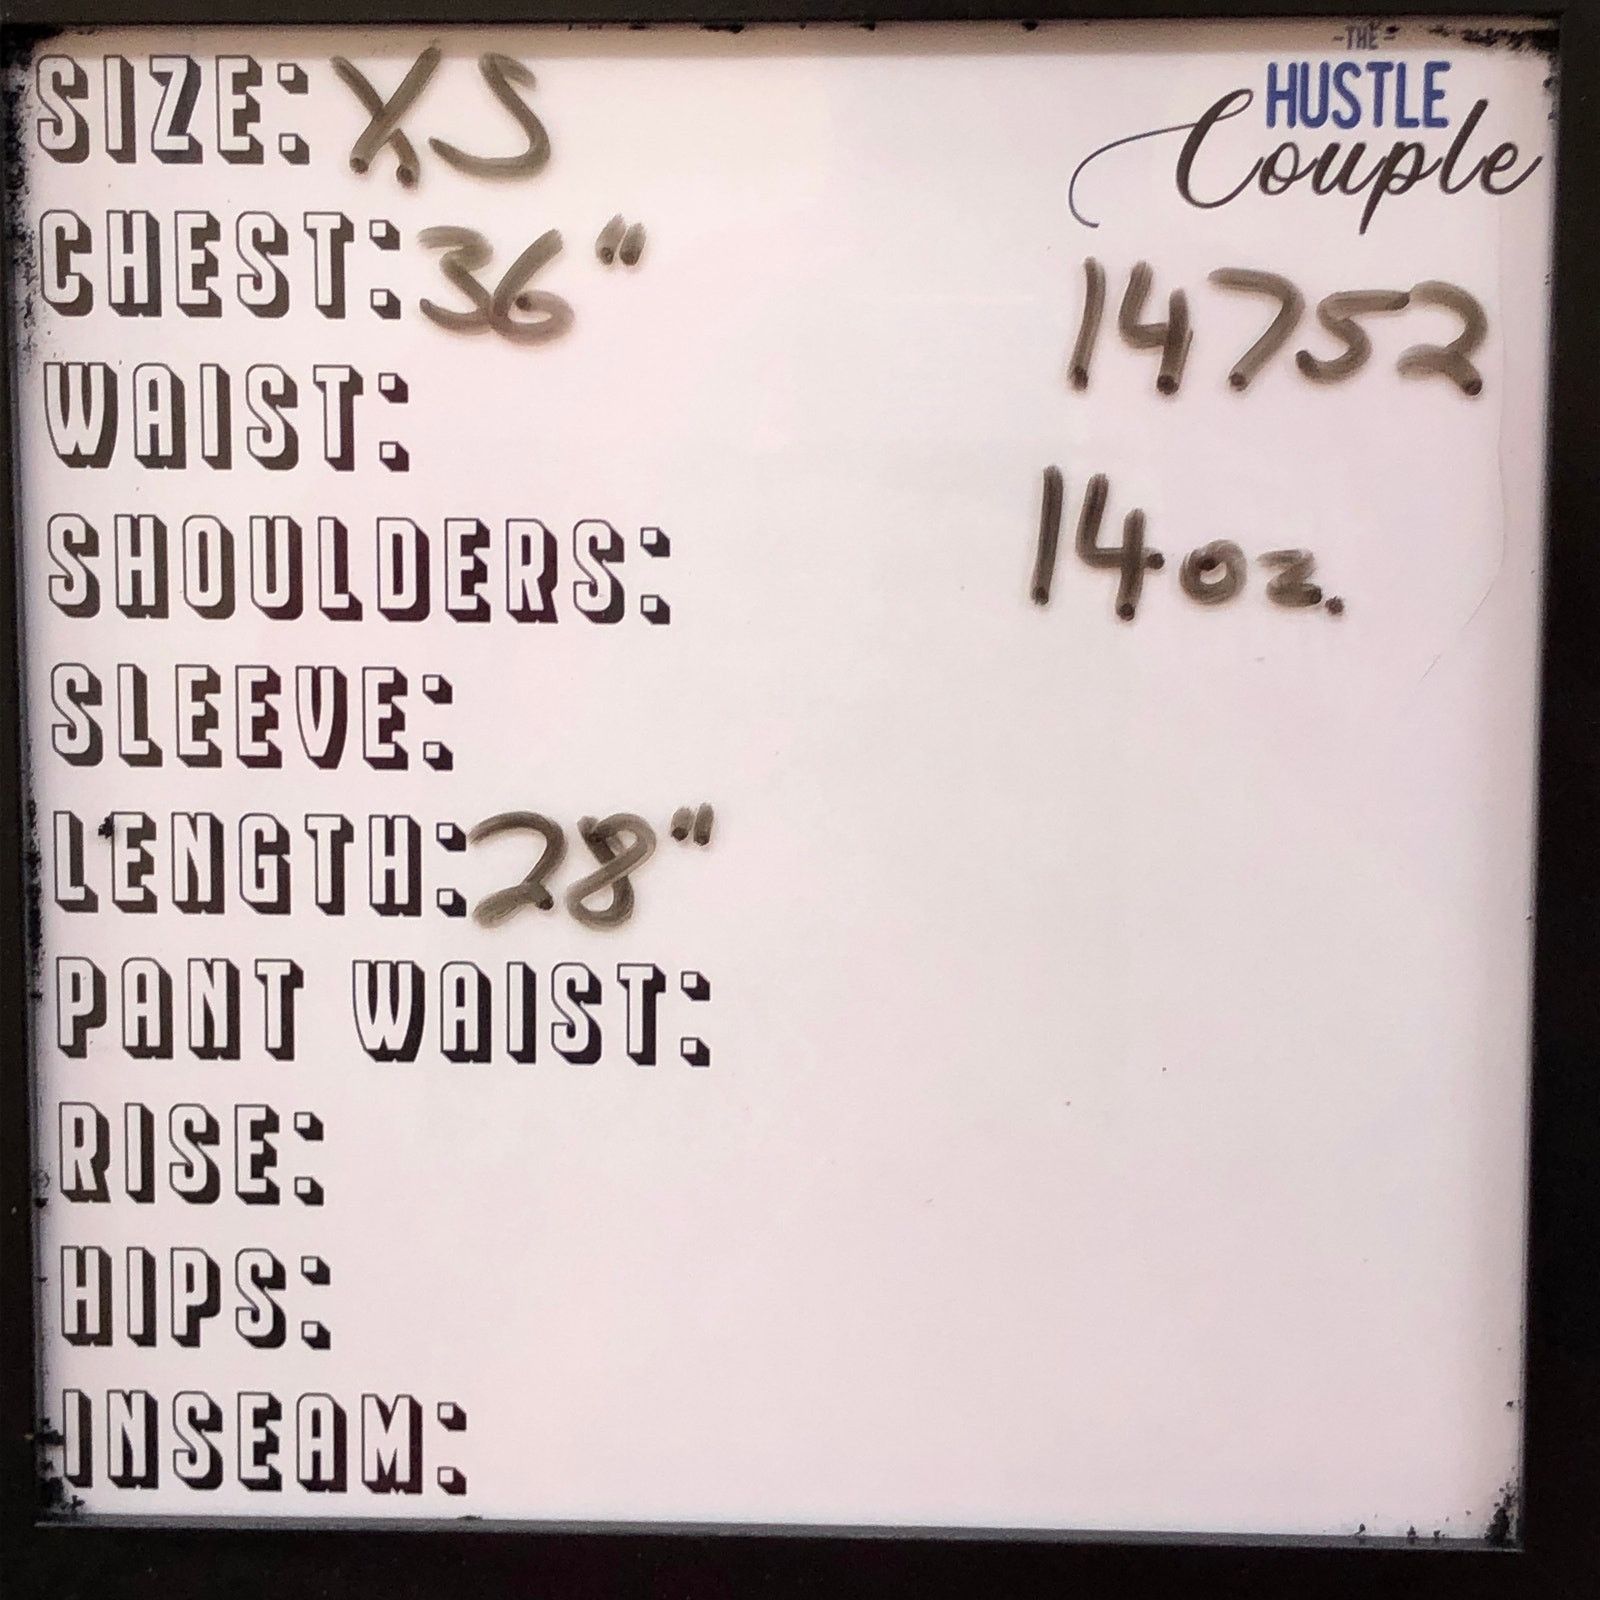 SIZE: XS
-THE-
HUSTLE
Couple
CHEST: 36"
14752
WAIST:
SHOULDERS:
14 oz.
SLEEVE:
LENGTH: 28"
PANT WAIST:
RISE:
HIPS:
INSEAM: